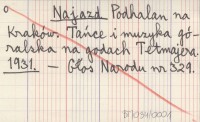 Najazd Podhalan na
Kraków. Tańce i muzyka gó-
ralska na godach Tetmajera.
1931. — Głos Narodu nr 329.